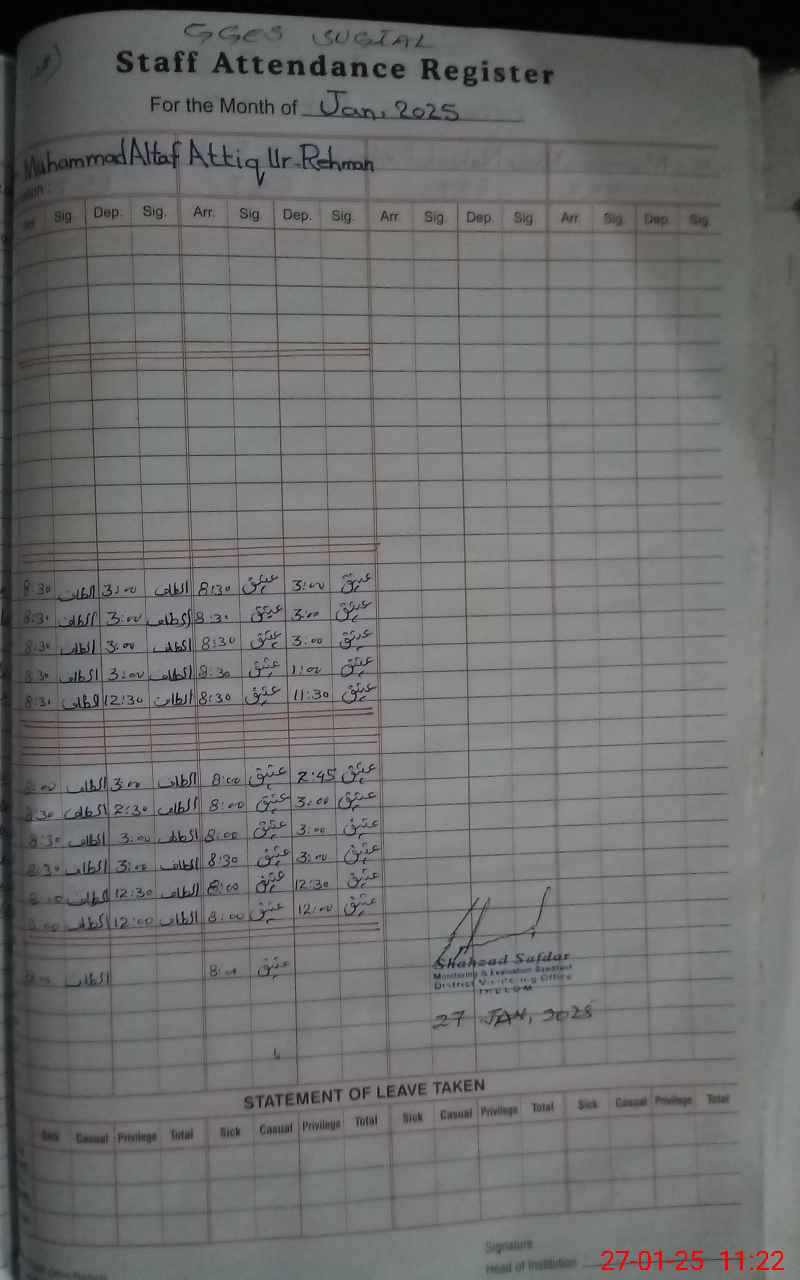 GGES SUGIAL
Staff Attendance Register
For the Month of Jan, 2025
Muhammad Altaf Attiq Ur-Rehman
Sig. Dep. Sig. Arr. Sig. Dep. Sig. Arr. Sig. Dep. Sig. Arr. Sig. Dep. Sig.
8:30 الطاف 3:00 الطاف 8:30 عتیق 3:00 عتیق
8:30 الطاف 3:00 الطاف 8:30 عتیق 3:00 عتیق
8:30 الطاف 3:00 الطاف 8:30 عتیق 3:00 عتیق
8:30 الطاف 3:00 الطاف 8:30 عتیق 1:00 عتیق
8:30 الطاف 12:30 الطاف 8:30 عتیق 11:30 عتیق
الطاف 3:00 الطاف 8:00 عتیق 2:45 عتیق
8:30 الطاف 2:30 الطاف 8:00 عتیق 3:00 عتیق
8:30 الطاف 3:00 الطاف 8:00 عتیق 3:00 عتیق
8:30 الطاف 3:00 الطاف 8:30 عتیق 3:00 عتیق
8:00 الطاف 12:30 الطاف 8:00 عتیق 12:30 عتیق
8:00 الطاف 12:00 الطاف 8:00 عتیق 12:00 عتیق
الطاف 8:00 عتیق
Shahzad Safdar
Monitoring & Evaluation Assistant
District Monitoring Office
JHELUM
27 JAN, 2025
STATEMENT OF LEAVE TAKEN
Sick Casual Privilege Total Sick Casual Privilege Total Sick Casual Privilege Total Sick Casual Privilege Total
Signature
Head of Institution
27-01-25 11:22